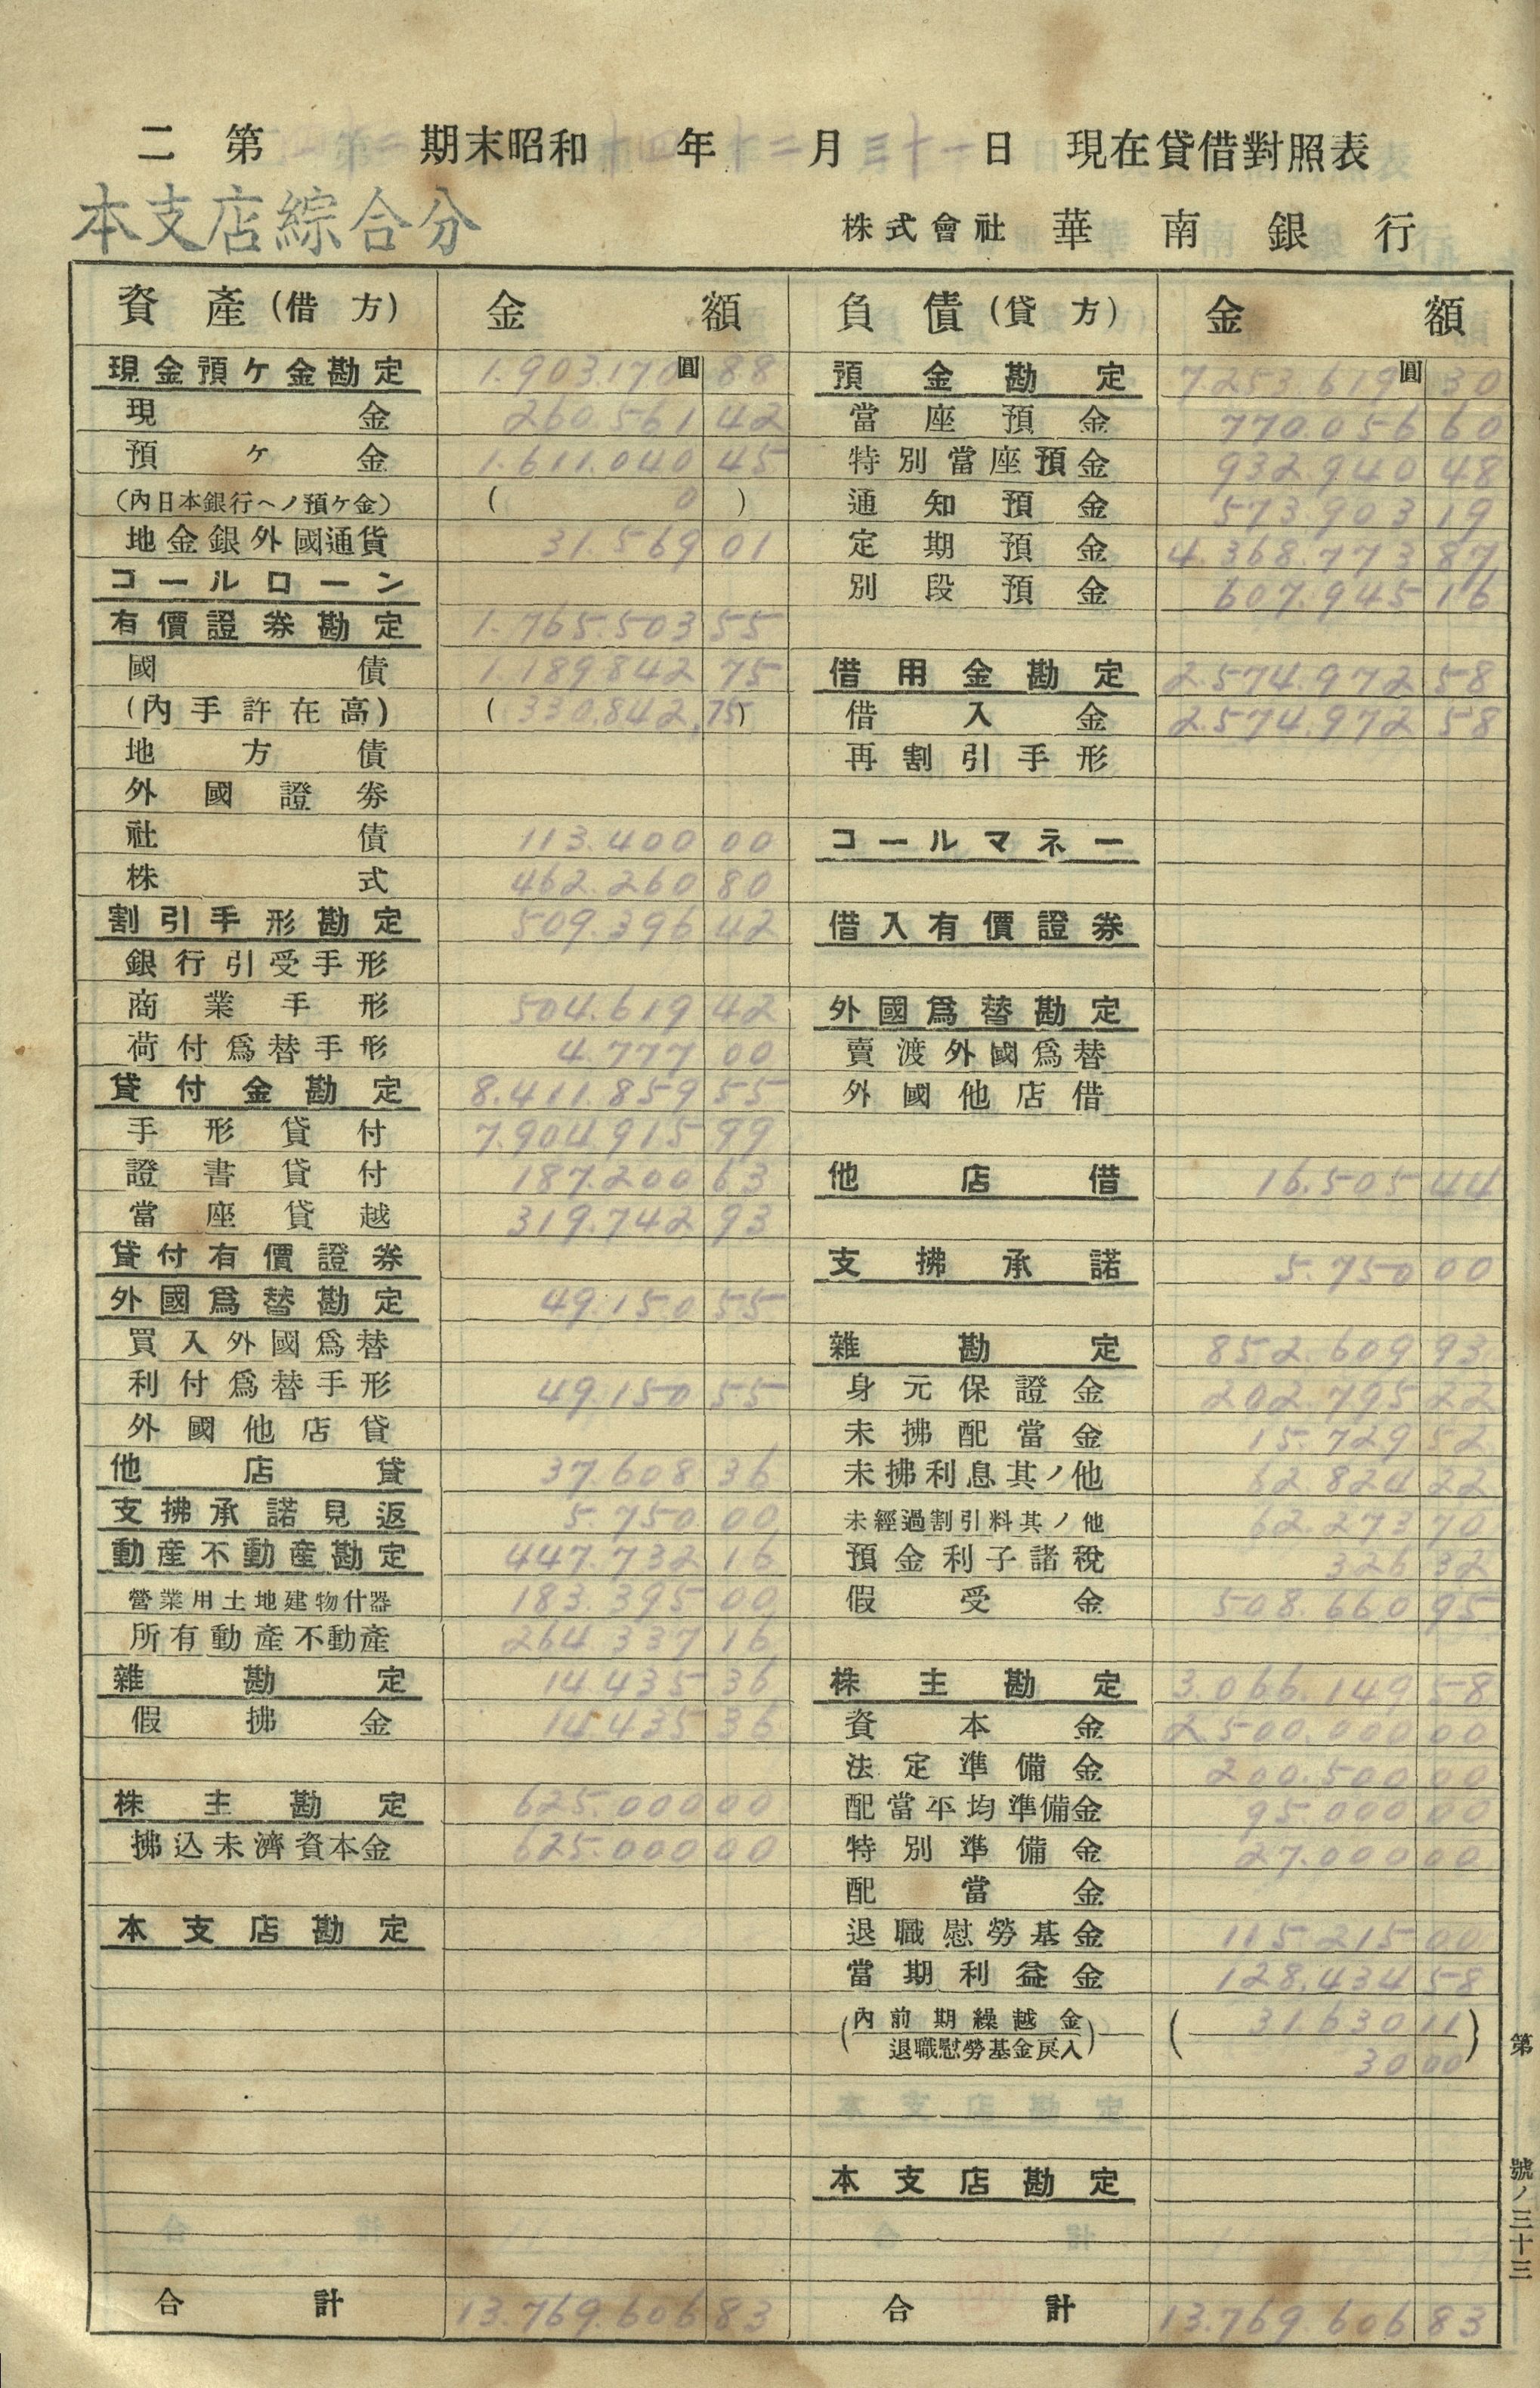 二 第 期末昭和十四年十二月三十一日 現在貸借對照表
本支店綜合分
株式會社 華南銀行
資產(借方) 金額 負債(貸方) 金額
現金預ケ金勘定 1.903.170圓88
現金 260.561 42
預ケ金 1.611.040 45
(內日本銀行ヘノ預ケ金) ( 0 )
地金銀外國通貨 31.569 01
コールローン
有價證券勘定 1.765.503 55
國債 1.189.842 75
(內手許在高) ( 330.842.75 )
地方債
外國證券
社債 113.400 00
株式 462.260 80
割引手形勘定 509.396 42
銀行引受手形
商業手形 504.619 42
荷付爲替手形 4.777 00
貸付金勘定 8.411.859 55
手形貸付 7.904.915 99
證書貸付 187.200 63
當座貸越 319.742 93
貸付有價證券
外國爲替勘定 49.150 55
買入外國爲替
利付爲替手形 49.150 55
外國他店貸
他店貸 37.608 36
支拂承諾見返 5.750 00
動產不動產勘定 447.732 16
營業用土地建物什器 183.395 00
所有動產不動產 264.337 16
雜勘定 14.435 36
假拂金 14.435 36
株主勘定 625.000 00
拂込未濟資本金 625.000 00
本支店勘定
合計 13.769.606 83
預金勘定 7.253.619圓30
當座預金 770.056 60
特別當座預金 932.940 48
通知預金 573.903 19
定期預金 4.368.773 87
別段預金 607.945 16
借用金勘定 2.574.972 58
借入金 2.574.972 58
再割引手形
コールマネー
借入有價證券
外國爲替勘定
賣渡外國爲替
外國他店借
他店借 16.505 44
支拂承諾 5.750 00
雜勘定 852.609 93
身元保證金 202.795 22
未拂配當金 15.729 52
未拂利息其ノ他 62.824 22
未經過割引料其ノ他 62.273 70
預金利子諸稅 326 32
假受金 508.660 95
株主勘定 3.066.149 58
資本金 2.500.000 00
法定準備金 200.500 00
配當平均準備金 95.000 00
特別準備金 27.000 00
配當金
退職慰勞基金 115.215 00
當期利益金 128.434 58
(內前期繰越金 31.630 11
退職慰勞基金戾入) 30 00
本支店勘定
合計 13.769.606 83
第 號ノ三十三